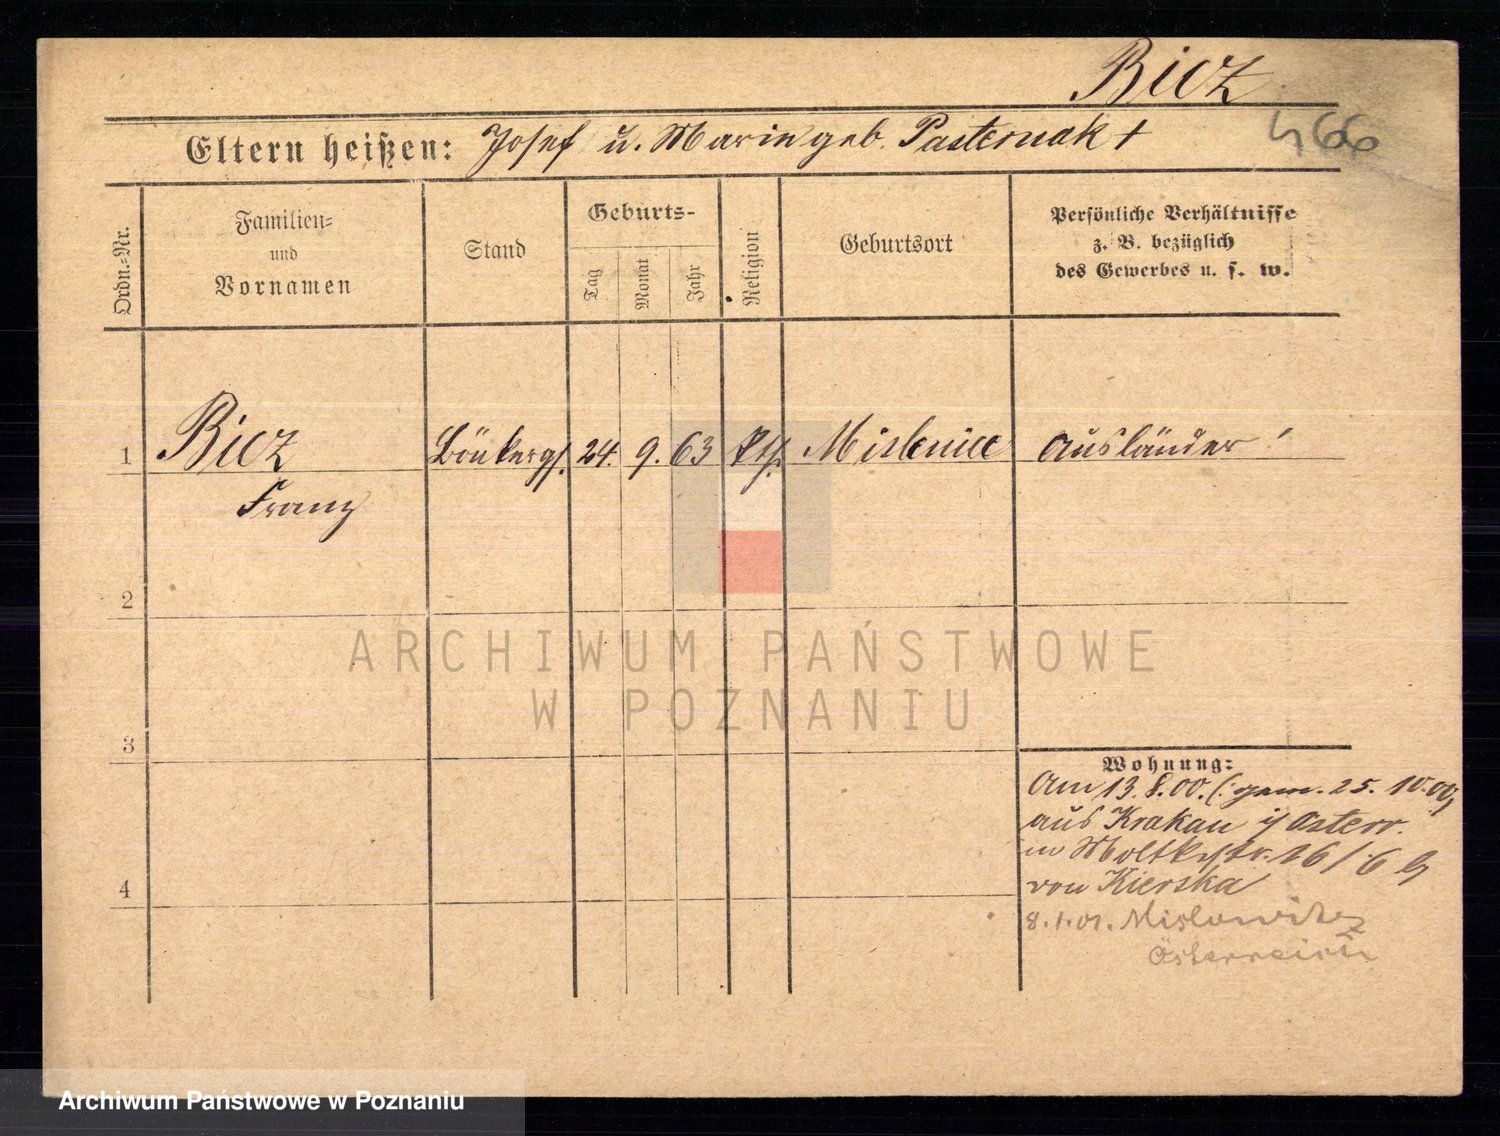 Bicz
466
Eltern heißen: Josef u. Marie geb. Pasternak +
Ordn.-Nr.
Familien- und Vornamen
Stand
Geburts-
Tag
Monat
Jahr
Religion
Geburtsort
Persönliche Verhältnisse
z. B. bezüglich
des Gewerbes u. s. w.
1 Bicz 24. 9. 63 kth Mislenice Ausländer!
Franz
2
ARCHIWUM PAŃSTWOWE
W POZNANIU
3
Wohnung:
Am 13. 8. 00. (: gem. 25. 10. 00
aus Krakau i/ Österr.
in Moltkestr. 26/6 b
4
von Kierska
8.1.01. Mislowitz
Österreich
Archiwum Państwowe w Poznaniu